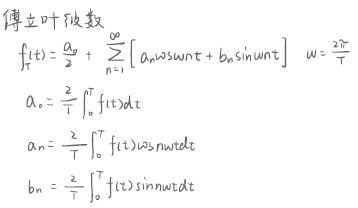 傅立叶级数
f_T(t) = a₀/2 + ∑_{n=1}^{∞} [ aₙcosωnt + bₙsinωnt ]    ω = 2π/T
a₀ = 2/T ∫₀ᵀ f(t)dt
aₙ = 2/T ∫₀ᵀ f(t)cosnωtdt
bₙ = 2/T ∫₀ᵀ f(t)sinnωtdt